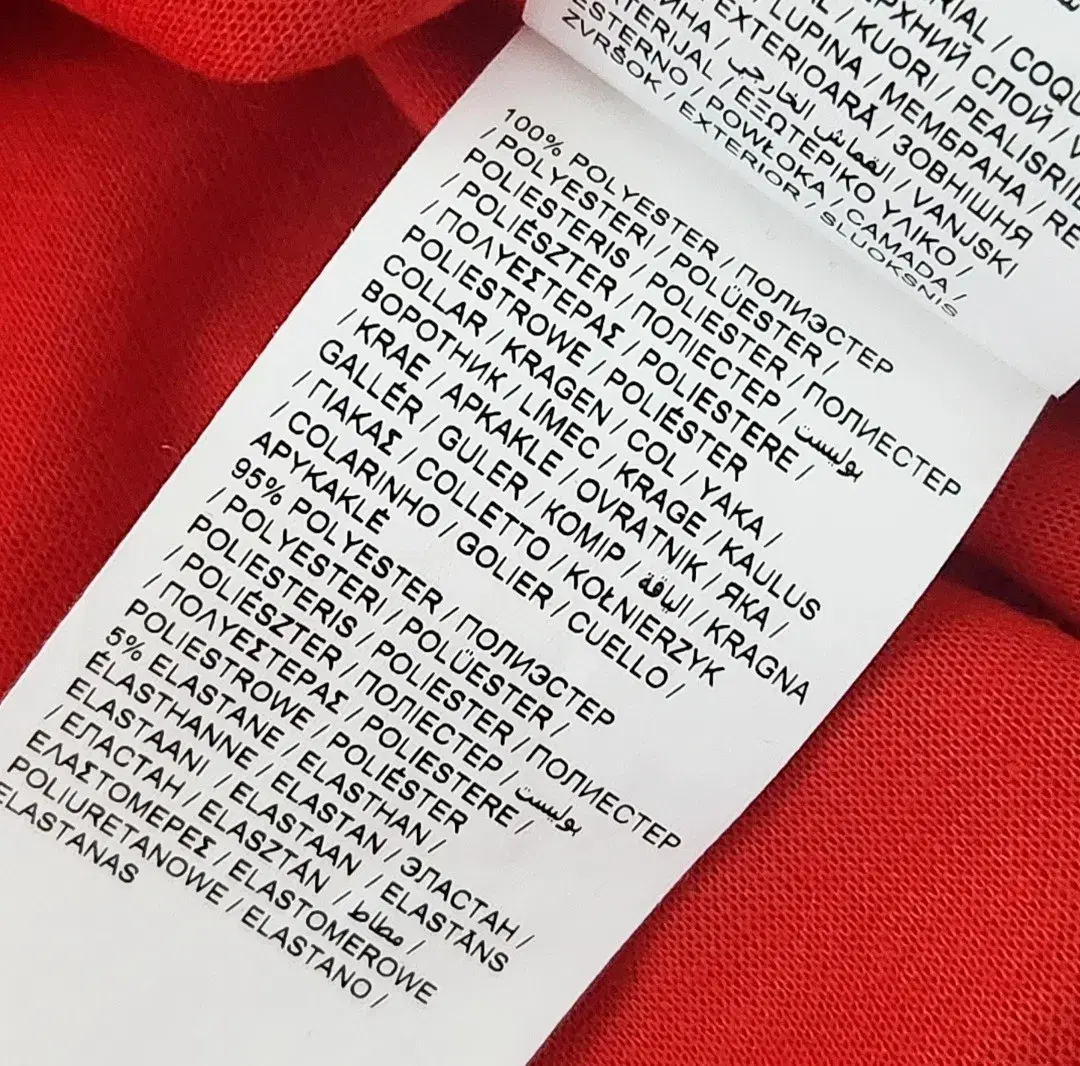 RIAL / COQU
РХНИЙ СЛОЙ / V
/ KUORI / PEALISRII
/ LUPINA / МЕМБРАНА / RE
EXTERIOARĂ / ЗОВНІШНЯ
ИНА / القماش الخارجي / VANJSKI
TERIJAL / ΕΞΩΤΕΡΙΚΟ ΥΛΙΚΟ /
ESTERNO / POWŁOKA / CAMADA /
ZVRŠOK / EXTERIOR / SLUOKSNIS
100% POLYESTER / ПОЛИЭСТЕР
/ POLYESTERI / POLÜESTER /
POLIESTERIS / POLIESTER / ПОЛИЕСТЕР
/ POLIÉSZTER / ПОЛІЕСТЕР / بوليست
/ ΠΟΛΥΕΣΤΕΡΑΣ / POLIESTERE /
POLIESTROWE / POLIÉSTER
COLLAR / KRAGEN / COL / YAKA /
ВОРОТНИК / LÍMEC / KRAGE / KAULUS
/ KRAE / APKAKLE / OVRATNIK / ЯКА /
GALLÉR / GULER / КОМІР / الياقة / KRAGNA
/ ΓΙΑΚΑΣ / COLLETTO / KOŁNIERZYK
/ COLARINHO / GOLIER / CUELLO /
APYKAKLĖ
95% POLYESTER / ПОЛИЭСТЕР
/ POLYESTERI / POLÜESTER /
POLIESTERIS / POLIESTER / ПОЛИЕСТЕР
/ POLIÉSZTER / ПОЛІЕСТЕР / بوليست
/ ΠΟΛΥΕΣΤΕΡΑΣ / POLIESTERE /
POLIESTROWE / POLIÉSTER
5% ELASTANE / ELASTHAN /
ÉLASTHANNE / ELASTAN / ЭЛАСТАН /
ELASTAANI / ELASTAAN / ELASTĀNS
/ ЕЛАСТАН / ELASZTÁN / مطاط /
ΕΛΑΣΤΟΜΕΡΕΣ / ELASTOMEROWE
POLIURETANOWE / ELASTANO /
ELASTANAS